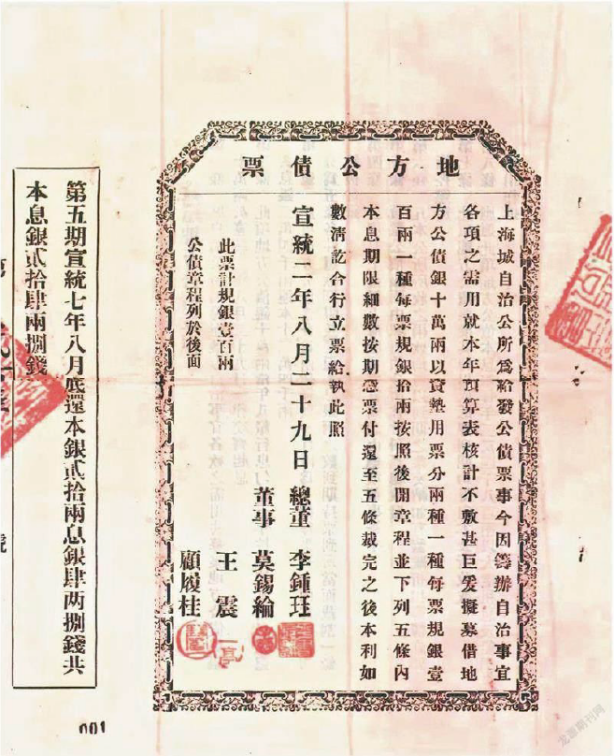 地方公債票
上海城自治公所爲給發公債票事今因籌辦自治事宜
各項之需用就本年預算表核計不敷甚巨爰擬募借地
方公債銀十萬兩以資墊用票分兩種一種每票規銀壹
百兩一種每票規銀拾兩按照後開章程並下列五條內
本息期限細數按期憑票付還至五條裁完之後本利如
數清訖合行立票給執此照
宣統二年八月二十九日
總董 李鍾珏
董事 莫錫綸
王震
顧履桂
此票計規銀壹百兩
公債章程列於後面
第五期宣統七年八月底還本銀貳拾兩息銀肆两捌錢共
本息銀貳拾肆兩捌錢
001